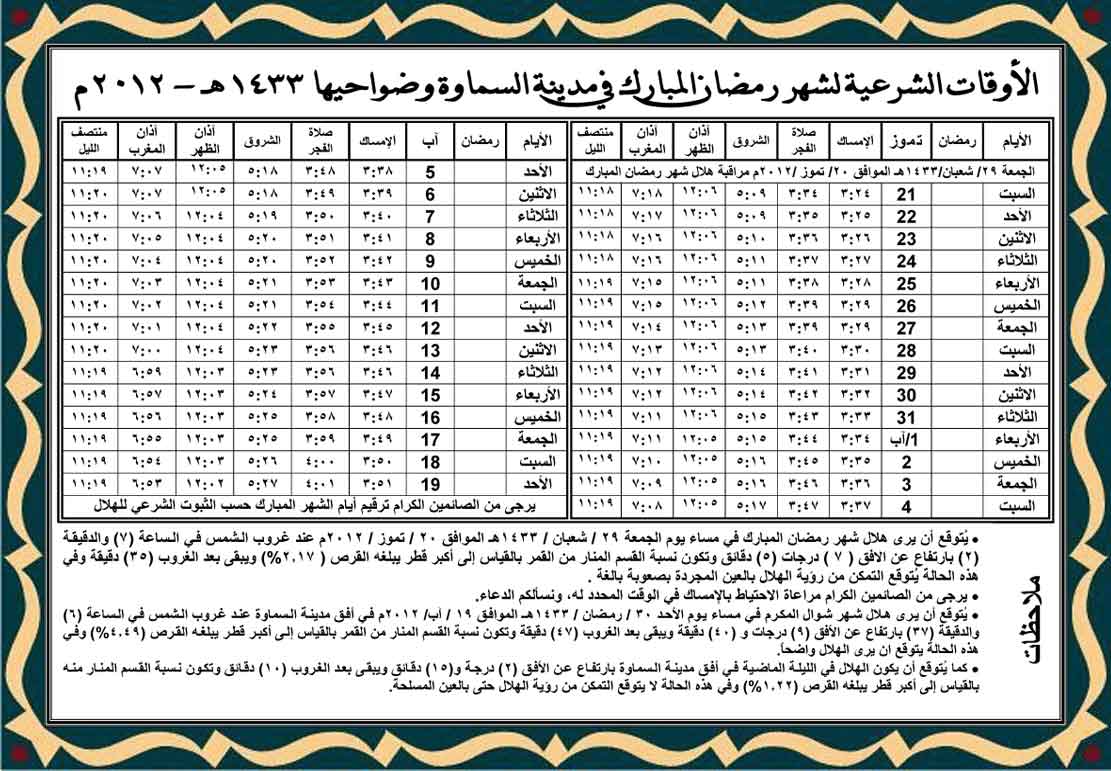 الأوقات الشرعية لشهر رمضان المبارك في مدينة السماوة وضواحيها ١٤٣٣هـ - ٢٠١٢م
الأيام رمضان تموز الإمساك صلاة الفجر الشروق أذان الظهر أذان المغرب منتصف الليل
الجمعة ٢٩/ شعبان/١٤٣٣هـ الموافق ٢٠/ تموز /٢٠١٢م مراقبة هلال شهر رمضان المبارك
السبت 21 ٣:٢٤ ٣:٣٤ ٥:٠٩ ١٢:٠٦ ٧:١٨ ١١:١٨
الأحد 22 ٣:٢٥ ٣:٣٥ ٥:٠٩ ١٢:٠٦ ٧:١٧ ١١:١٨
الاثنين 23 ٣:٢٦ ٣:٣٦ ٥:١٠ ١٢:٠٦ ٧:١٦ ١١:١٨
الثلاثاء 24 ٣:٢٧ ٣:٣٧ ٥:١١ ١٢:٠٦ ٧:١٦ ١١:١٨
الأربعاء 25 ٣:٢٨ ٣:٣٨ ٥:١١ ١٢:٠٦ ٧:١٥ ١١:١٩
الخميس 26 ٣:٢٩ ٣:٣٩ ٥:١٢ ١٢:٠٦ ٧:١٥ ١١:١٩
الجمعة 27 ٣:٢٩ ٣:٣٩ ٥:١٣ ١٢:٠٦ ٧:١٤ ١١:١٩
السبت 28 ٣:٣٠ ٣:٤٠ ٥:١٣ ١٢:٠٦ ٧:١٣ ١١:١٩
الأحد 29 ٣:٣١ ٣:٤١ ٥:١٤ ١٢:٠٦ ٧:١٢ ١١:١٩
الاثنين 30 ٣:٣٢ ٣:٤٢ ٥:١٤ ١٢:٠٦ ٧:١١ ١١:١٩
الثلاثاء 31 ٣:٣٣ ٣:٤٣ ٥:١٥ ١٢:٠٦ ٧:١١ ١١:١٩
الأربعاء 1/آب ٣:٣٤ ٣:٤٤ ٥:١٥ ١٢:٠٥ ٧:١١ ١١:١٩
الخميس 2 ٣:٣٥ ٣:٤٥ ٥:١٦ ١٢:٠٥ ٧:١٠ ١١:١٩
الجمعة 3 ٣:٣٦ ٣:٤٦ ٥:١٦ ١٢:٠٥ ٧:٠٩ ١١:١٩
السبت 4 ٣:٣٧ ٣:٤٧ ٥:١٧ ١٢:٠٥ ٧:٠٨ ١١:١٩
الأيام رمضان آب الإمساك صلاة الفجر الشروق أذان الظهر أذان المغرب منتصف الليل
الأحد 5 ٣:٣٨ ٣:٤٨ ٥:١٨ ١٢:٠٥ ٧:٠٧ ١١:١٩
الاثنين 6 ٣:٣٩ ٣:٤٩ ٥:١٨ ١٢:٠٥ ٧:٠٧ ١١:١٩
الثلاثاء 7 ٣:٤٠ ٣:٥٠ ٥:١٩ ١٢:٠٤ ٧:٠٦ ١١:٢٠
الأربعاء 8 ٣:٤١ ٣:٥١ ٥:٢٠ ١٢:٠٤ ٧:٠٥ ١١:٢٠
الخميس 9 ٣:٤٢ ٣:٥٢ ٥:٢٠ ١٢:٠٤ ٧:٠٤ ١١:٢٠
الجمعة 10 ٣:٤٣ ٣:٥٣ ٥:٢١ ١٢:٠٤ ٧:٠٣ ١١:٢٠
السبت 11 ٣:٤٤ ٣:٥٤ ٥:٢١ ١٢:٠٤ ٧:٠٢ ١١:٢٠
الأحد 12 ٣:٤٥ ٣:٥٥ ٥:٢٢ ١٢:٠٤ ٧:٠١ ١١:٢٠
الاثنين 13 ٣:٤٦ ٣:٥٦ ٥:٢٣ ١٢:٠٤ ٧:٠٠ ١١:٢٠
الثلاثاء 14 ٣:٤٦ ٣:٥٦ ٥:٢٣ ١٢:٠٣ ٦:٥٩ ١١:١٩
الأربعاء 15 ٣:٤٧ ٣:٥٧ ٥:٢٤ ١٢:٠٣ ٦:٥٧ ١١:١٩
الخميس 16 ٣:٤٨ ٣:٥٨ ٥:٢٥ ١٢:٠٣ ٦:٥٦ ١١:١٩
الجمعة 17 ٣:٤٩ ٣:٥٩ ٥:٢٥ ١٢:٠٣ ٦:٥٥ ١١:١٩
السبت 18 ٣:٥٠ ٤:٠٠ ٥:٢٦ ١٢:٠٣ ٦:٥٤ ١١:١٩
الأحد 19 ٣:٥١ ٤:٠١ ٥:٢٧ ١٢:٠٢ ٦:٥٣ ١١:١٩
يرجى من الصائمين الكرام ترقيم أيام الشهر المبارك حسب الثبوت الشرعي للهلال
ملاحظات
• يُتوقع أن يرى هلال شهر رمضان المبارك في مساء يوم الجمعة ٢٩ / شعبان / ١٤٣٣هـ الموافق ٢٠ / تموز / ٢٠١٢م عند غروب الشمس في الساعة (٧) والدقيقة
(٢) بارتفاع عن الافق ( ٧ ) درجات (٥) دقائق وتكون نسبة القسم المنار من القمر بالقياس إلى أكبر قطر يبلغه القرص ( ٢.١٧%) ويبقى بعد الغروب (٣٥) دقيقة وفي
هذه الحالة يُتوقع التمكن من رؤية الهلال بالعين المجردة بصعوبة بالغة .
• يرجى من الصائمين الكرام مراعاة الاحتياط بالإمساك في الوقت المحدد له، ونسألكم الدعاء.
• يُتوقع أن يرى هلال شهر شوال المكرم في مساء يوم الأحد ٣٠ / رمضان / ١٤٣٣هـ الموافق ١٩ / آب/ ٢٠١٢م في أفق مدينة السماوة عند غروب الشمس في الساعة (٦)
والدقيقة (٣٧) بارتفاع عن الأفق (٩) درجات و (٤٠) دقيقة ويبقى بعد الغروب (٤٧) دقيقة وتكون نسبة القسم المنار من القمر بالقياس إلى أكبر قطر يبلغه القرص (٤.٤٩%) وفي
هذه الحالة يتوقع ان يرى الهلال واضحاً.
• كما يُتوقع أن يكون الهلال في الليلة الماضية في أفق مدينة السماوة بارتفاع عن الأفق (٢) درجة و(١٥) دقائق ويبقى بعد الغروب (١٠) دقائق وتكون نسبة القسم المنار منه
بالقياس إلى أكبر قطر يبلغه القرص (١.٢٢%) وفي هذه الحالة لا يتوقع التمكن من رؤية الهلال حتى بالعين المسلحة.